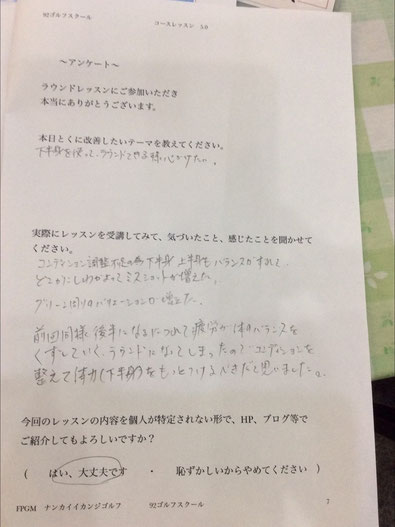 92ゴルフスクール コースレッスン 5.0
~アンケート~
ラウンドレッスンにご参加いただき
本当にありがとうございます。
本日とくに改善したいテーマを教えてください。
下半身を使って、ラウンドでやる様心がけたい。
実際にレッスンを受講してみて、気づいたこと、感じたことを聞かせて
ください。
コンディション調整不足の為下半身、上半身もバランスがすれて、
どこかにしわがよってミスショットが増えた。
グリーン回りのバリエーションが増えた。
前回同様後半になるにつれて疲労が体のバランスを
くずしていくラウンドになってしまったのでコンディションを
整えて体力(下半身)をもっとつけるべきだと思いました。
今回のレッスンの内容を個人が特定されない形で、HP、ブログ等で
ご紹介してもよろしいですか?
( はい、大丈夫です ・ 恥ずかしいからやめてください )
FPGM ナンカイイカンジゴルフ 92ゴルフスクール 7